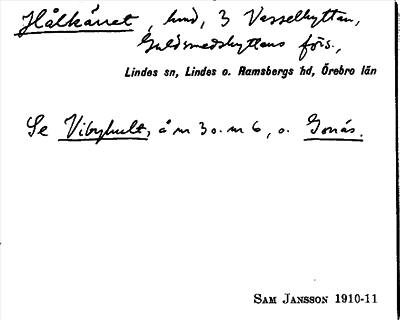 Hålkärret, hmd, 3 Vasselhyttan,
Guldsmedshyttans förs.,
Lindes sn, Lindes o. Ramsbergs hd, Örebro län
Se Vibyhult, å m 3 o. m 6, o. Gonäs.
SAM JANSSON 1910-11